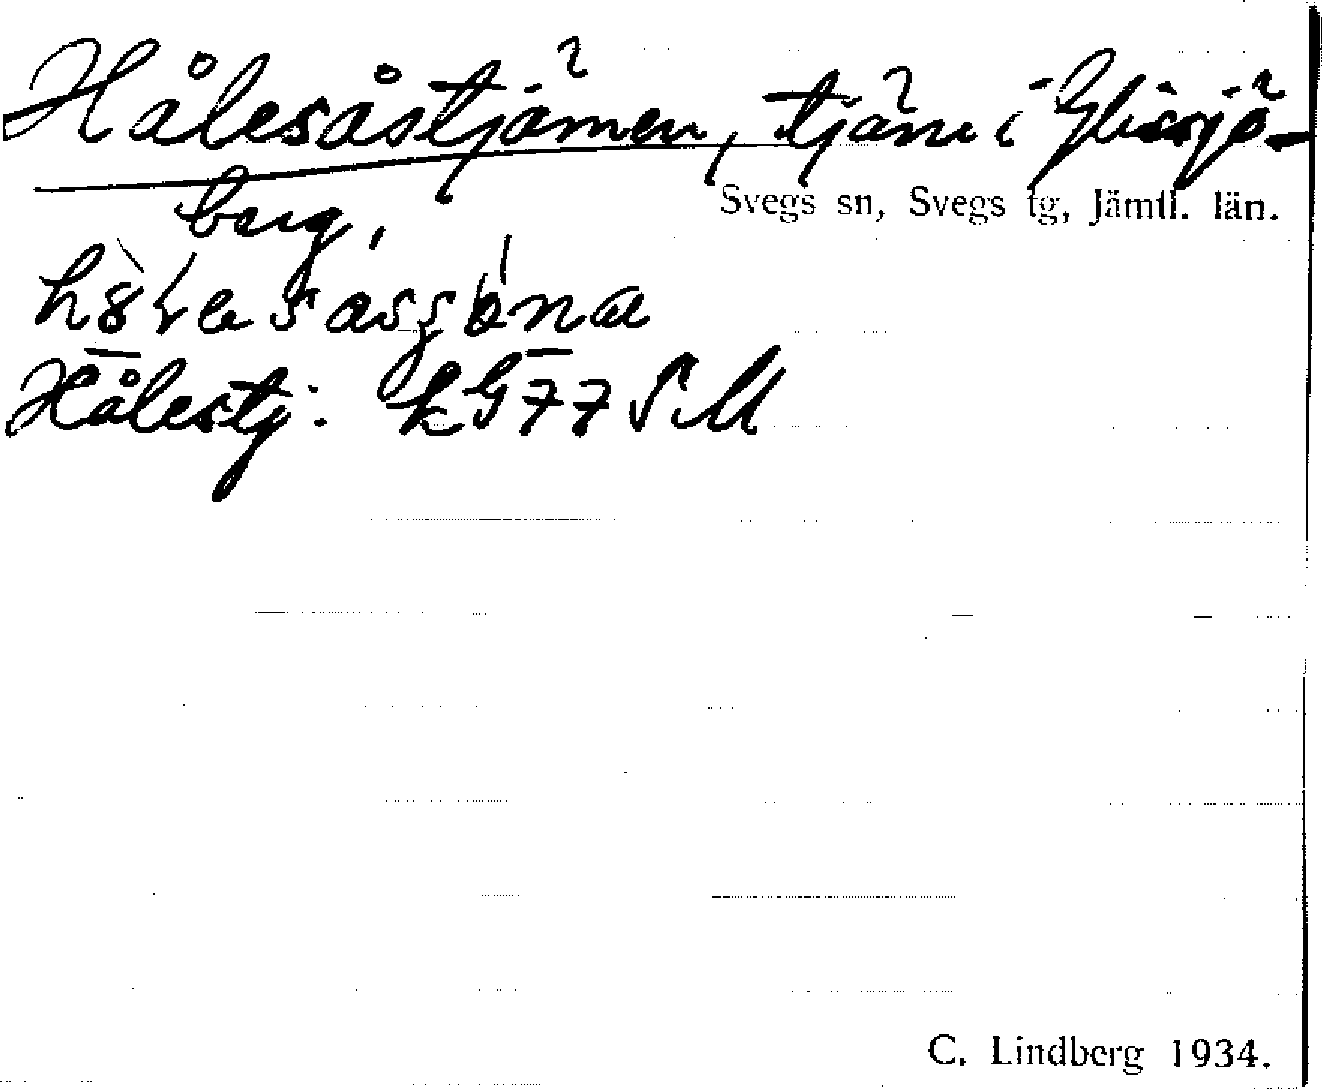 Hålesåstjärnen, tjärn i Glissjö-
berg,
Svegs sn, Svegs tg, Jämtl. län.
Hålestj: KG77 SM
C. Lindberg 1934.